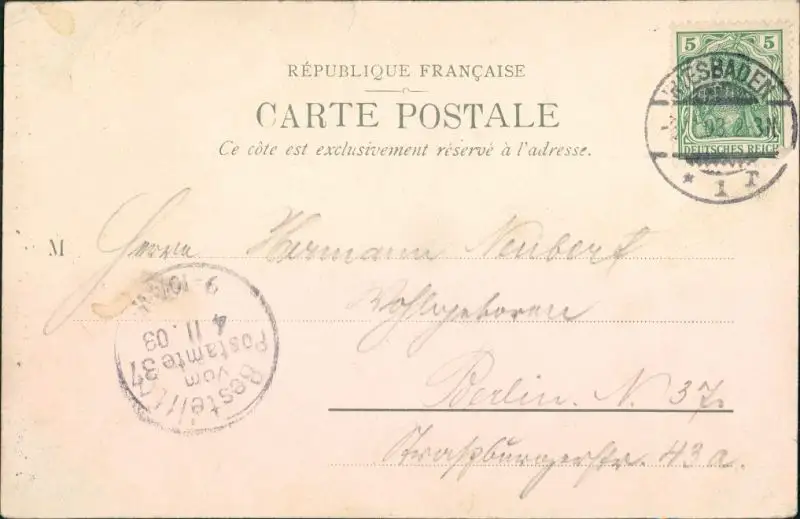 RÉPUBLIQUE FRANÇAISE
CARTE POSTALE
Ce côte est exclusivement réservé à l'adresse.
5 5
DEUTSCHES REICH
WIESBADEN
03
* 1 T
M Herrn Hermann Neubert
Wohlgeboren
Berlin. N. 37.
Straßburgerstr. 43a.
Bestellt
vom
Postamte 37
4 11. 03
9-10